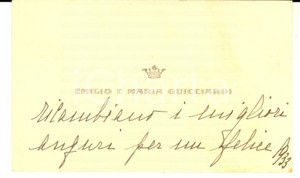 EMILIO E MARIA GUICCIARDI
ricambiano i migliori
auguri per un felice 1933